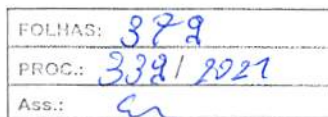 FOLHAS: 379
PROC.: 339/2021
Ass.: